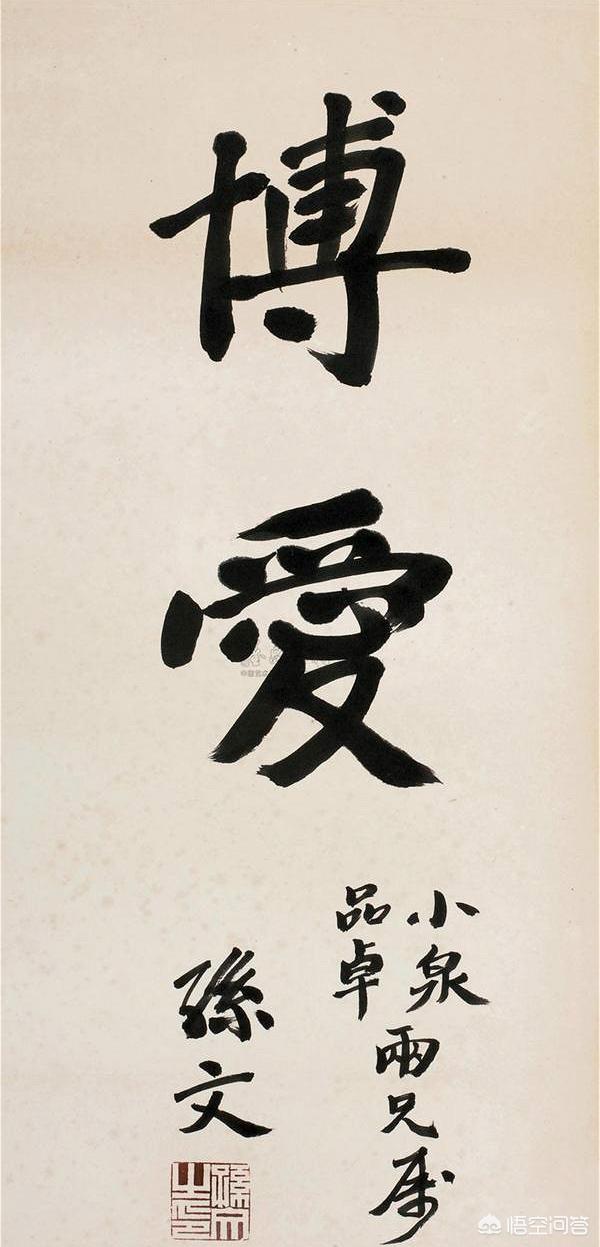 博愛
小泉
品卓
兩兄属
孫文
孫文之印
悟空问答